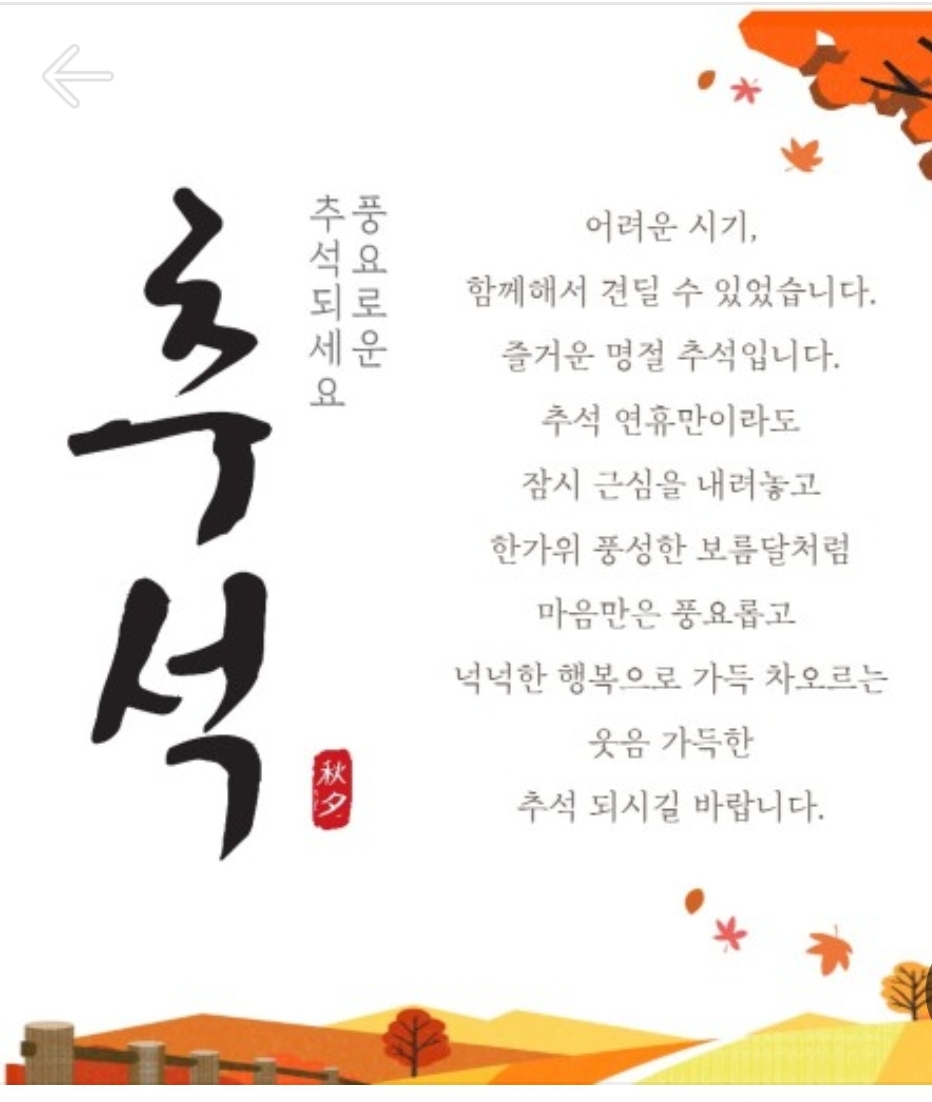 추석
풍요로운
추석되세요
秋夕
어려운 시기,
함께해서 견딜 수 있었습니다.
즐거운 명절 추석입니다.
추석 연휴만이라도
잠시 근심을 내려놓고
한가위 풍성한 보름달처럼
마음만은 풍요롭고
넉넉한 행복으로 가득 차오르는
웃음 가득한
추석 되시길 바랍니다.